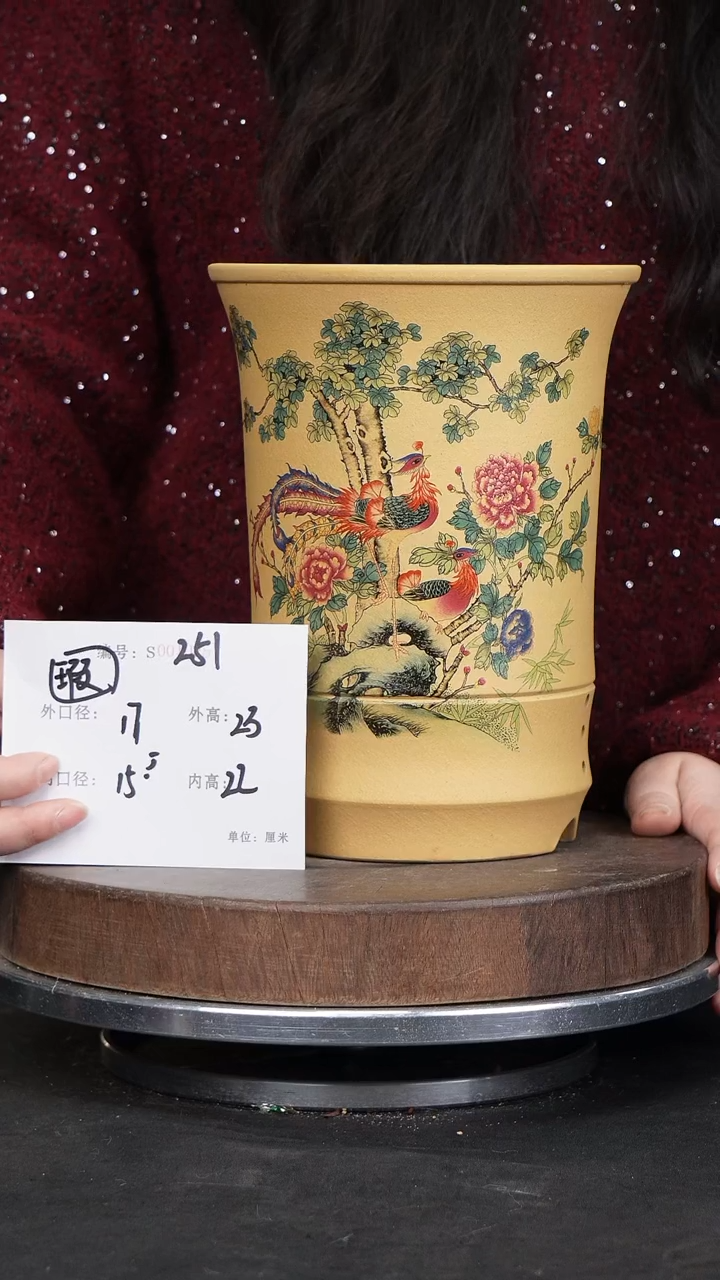 编号：S00 251
瑕
外口径：17 外高：23
内口径：15.5 内高：22
单位：厘米